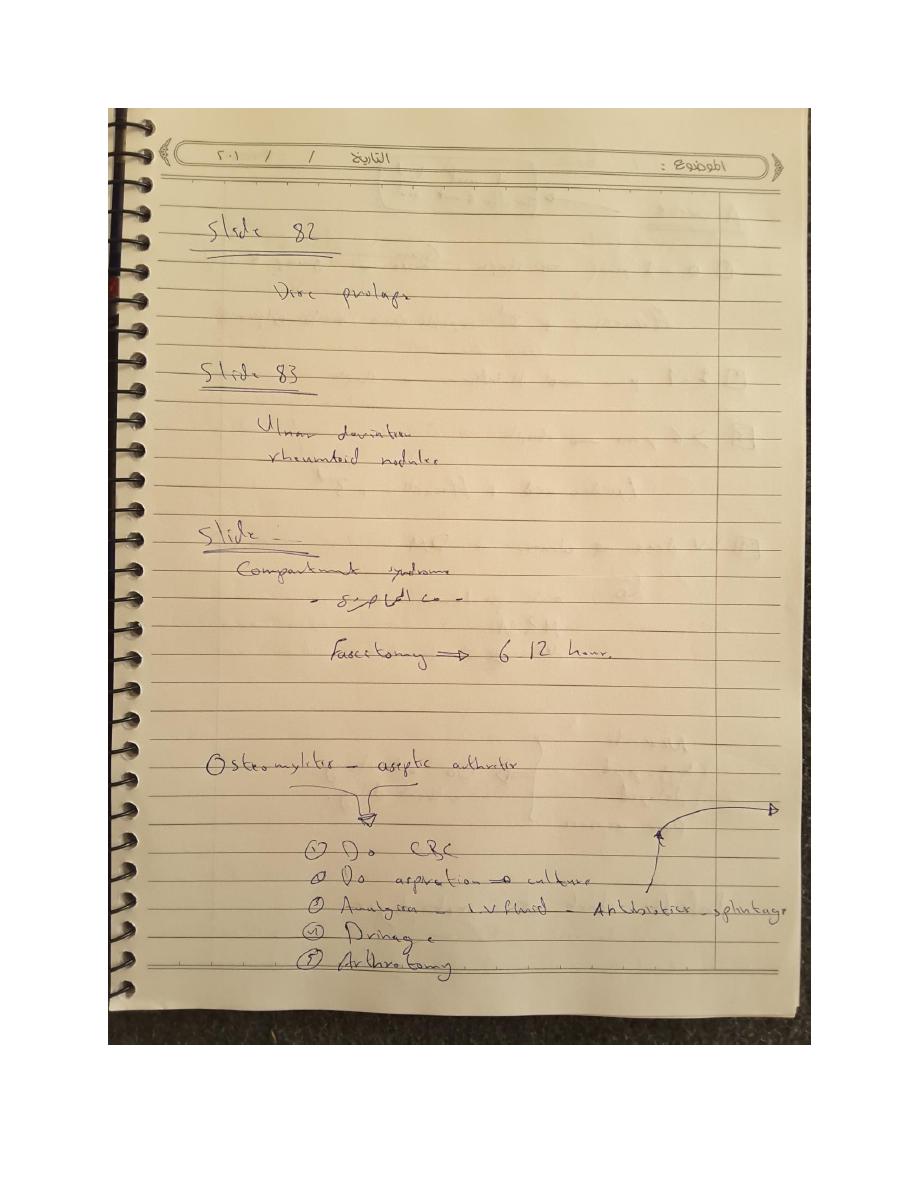 الموضوع : التاريخ / / ٢٠١
Slide 82
Disc prolapse
Slide 83
Ulnar deviation
rheumtoid nodules
Slide ...
Compartment syndrome
Fascitomy ⇒ 6 12 hour.
Osteomylitis - aseptic arthritis
① Do CBC
② Do aspiration ⇒ culture
③ Analgesia - I.V fluid - Antibiotics - splintage
④ Drinage
⑤ Arthrotomy